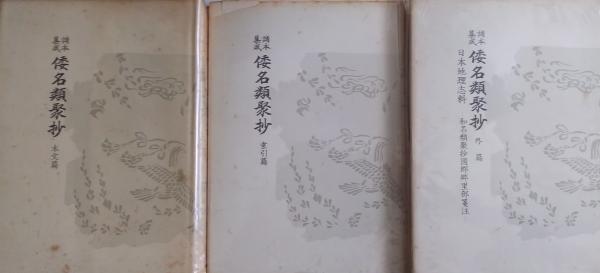 諸本集成
倭名類聚抄
本文篇
諸本集成
倭名類聚抄
索引篇
諸本集成
倭名類聚抄
外篇
日本地理志料
和名類聚抄国郡郷里部箋注